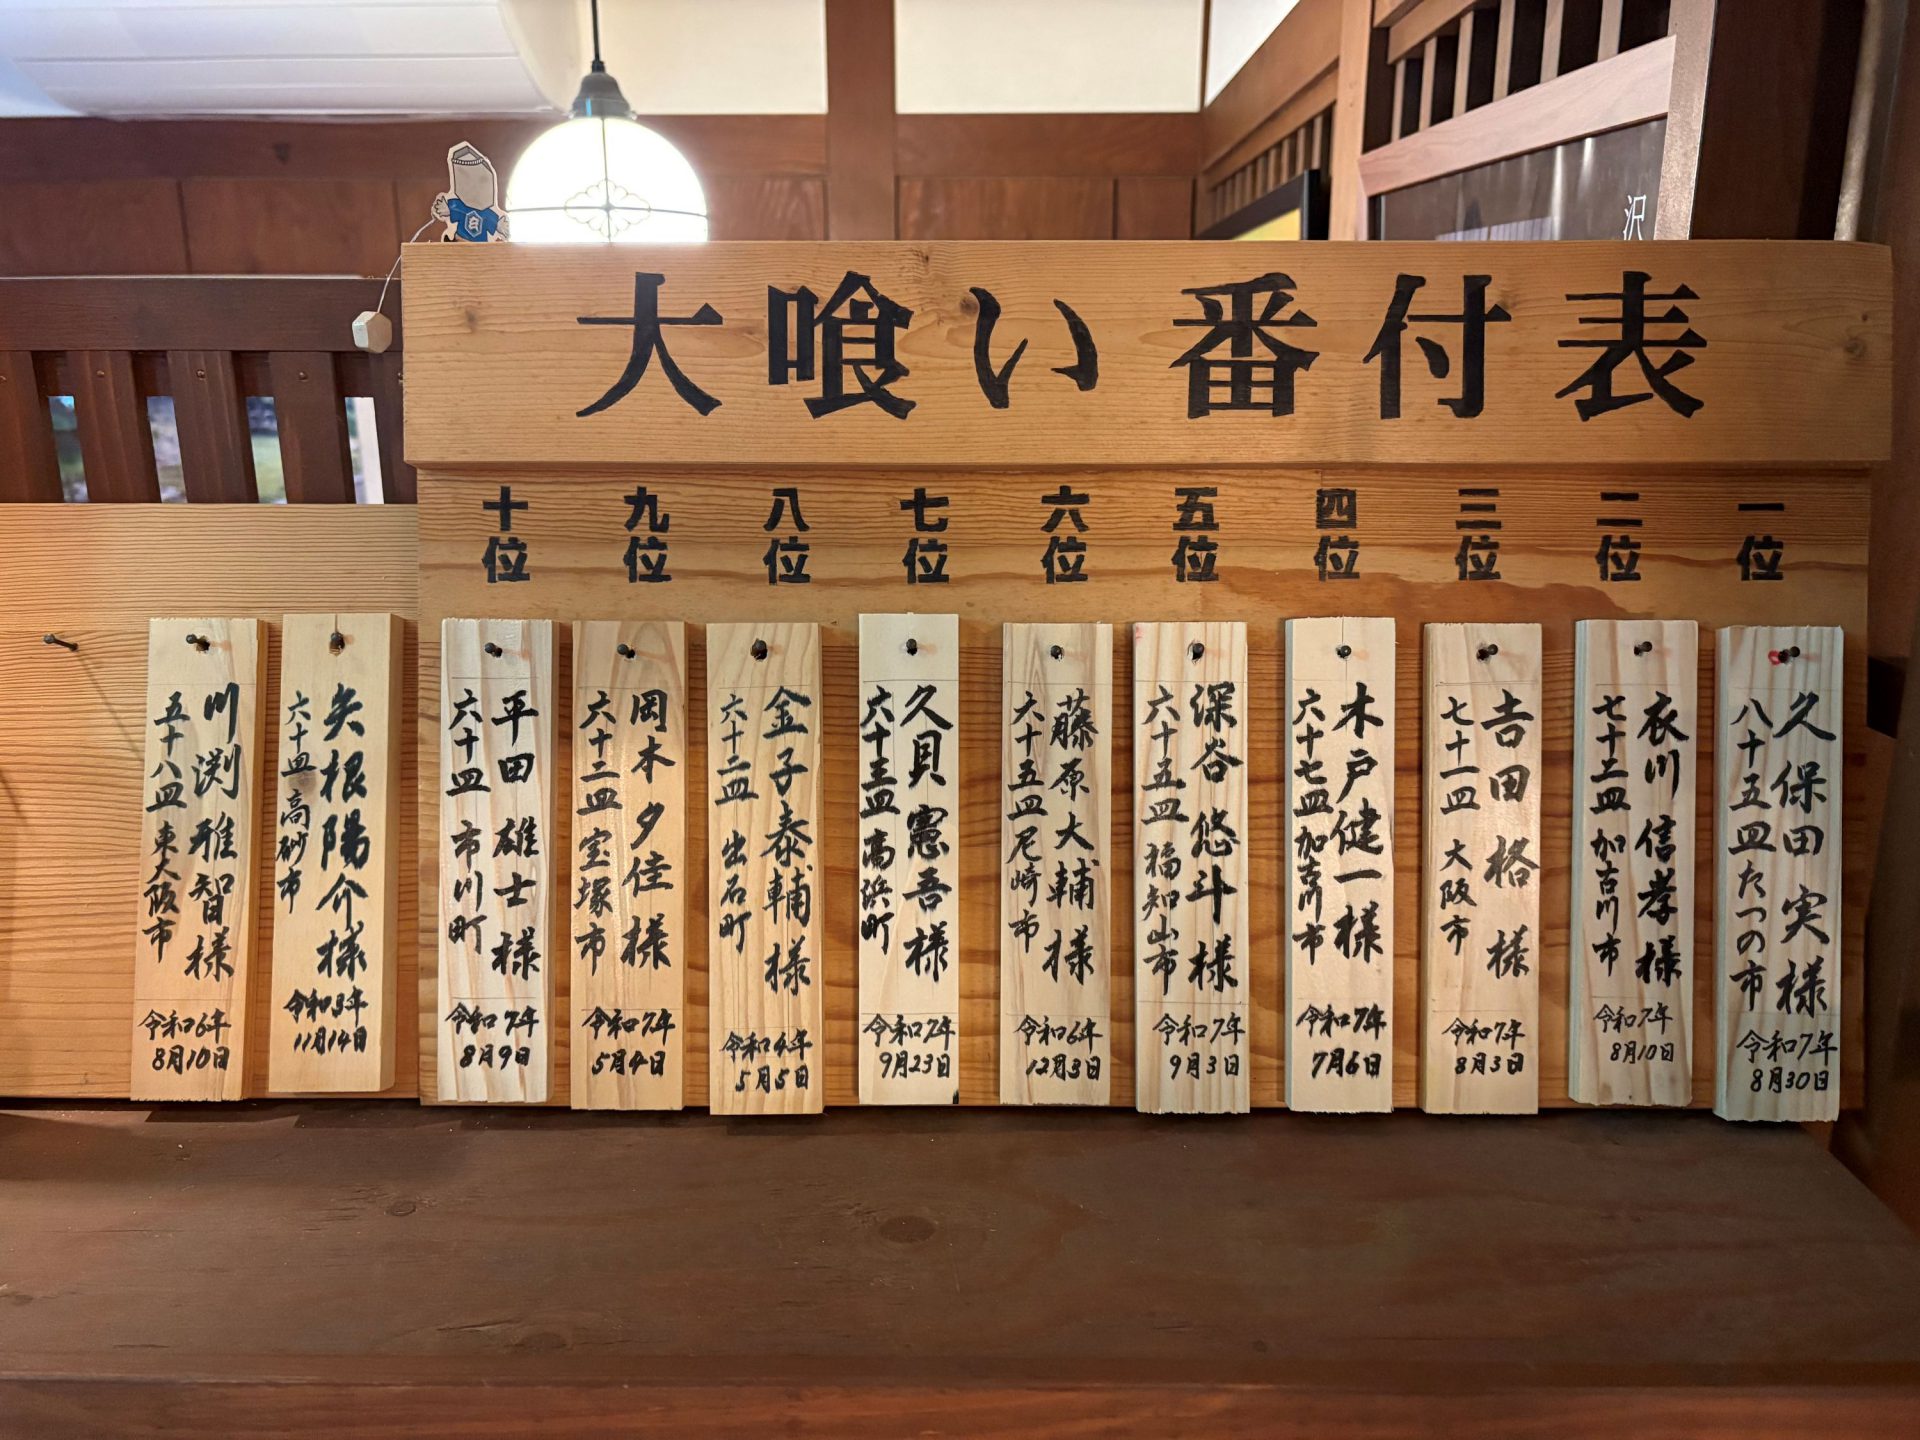 大喰い番付表
一位
久保田実様
八十五皿たつの市
令和7年
8月30日
二位
衣川信孝様
七十二皿加古川市
令和7年
8月10日
三位
吉田格様
七十一皿大阪市
令和7年
8月3日
四位
木戸健一様
六十七皿加古川市
令和7年
7月6日
五位
深谷悠斗様
六十五皿福知山市
令和7年
9月3日
六位
藤原大輔様
六十五皿尼崎市
令和6年
12月3日
七位
久貝憲吾様
六十三皿高浜町
令和7年
9月23日
八位
金子泰輔様
六十二皿出石町
令和4年
5月5日
九位
岡本夕佳様
六十二皿宝塚市
令和7年
5月4日
十位
平田雄士様
六十皿市川町
令和7年
8月9日
矢根陽介様
六十皿高砂市
令和3年
11月14日
川渕雅智様
五十八皿東大阪市
令和6年
8月10日
沢